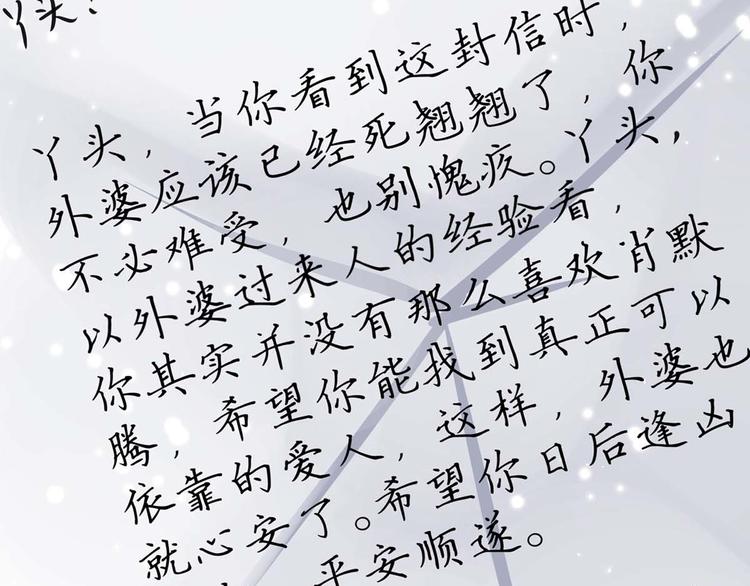 丫头：
丫头，当你看到这封信时，
外婆应该已经死翘翘了，你
不必难受，也别愧疚。丫头，
以外婆过来人的经验看，
你其实并没有那么喜欢肖默
腾，希望你能找到真正可以
依靠的爱人，这样，外婆也
就心安了。希望你日后逢凶
平安顺遂。